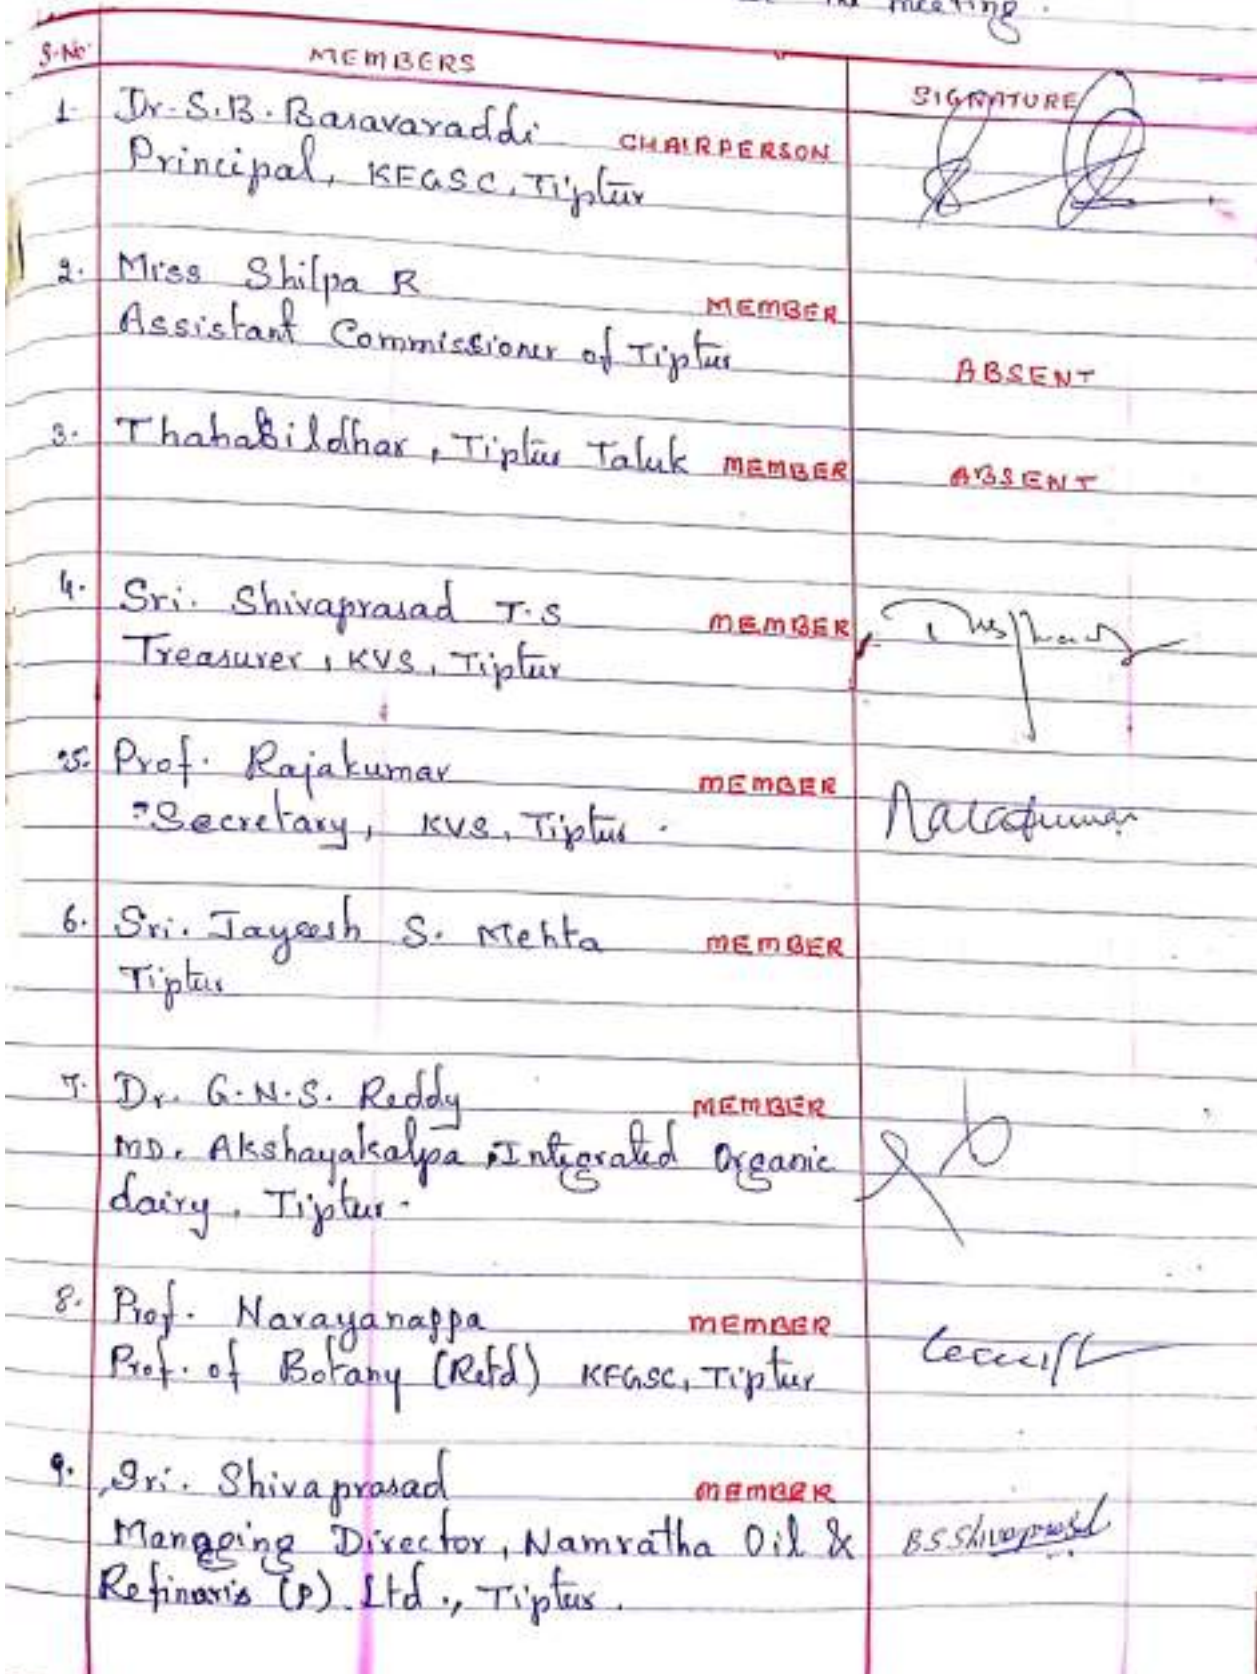 the meeting.
S.No. MEMBERS SIGNATURE
1. Dr. S.B. Basavaraddi CHAIRPERSON
Principal, KFGSC, Tiptur
2. Miss Shilpa R MEMBER
Assistant Commissioner of Tiptur ABSENT
3. Thahasildhar, Tiptur Taluk MEMBER ABSENT
4. Sri. Shivaprasad T.S MEMBER
Treasurer, KVS, Tiptur
5. Prof. Rajakumar MEMBER
Secretary, KVS, Tiptur.
6. Sri. Jayeesh S. Mehta MEMBER
Tiptur
7. Dr. G.N.S. Reddy MEMBER
MD. Akshayakalpa, Integrated Organic
dairy, Tiptur.
8. Prof. Narayanappa MEMBER
Prof. of Botany (Retd) KFGSC, Tiptur
9. Sri. Shivaprasad MEMBER
Manageing Director, Namratha Oil & B.S Shivaprasad
Refinaris (P) Ltd., Tiptur.